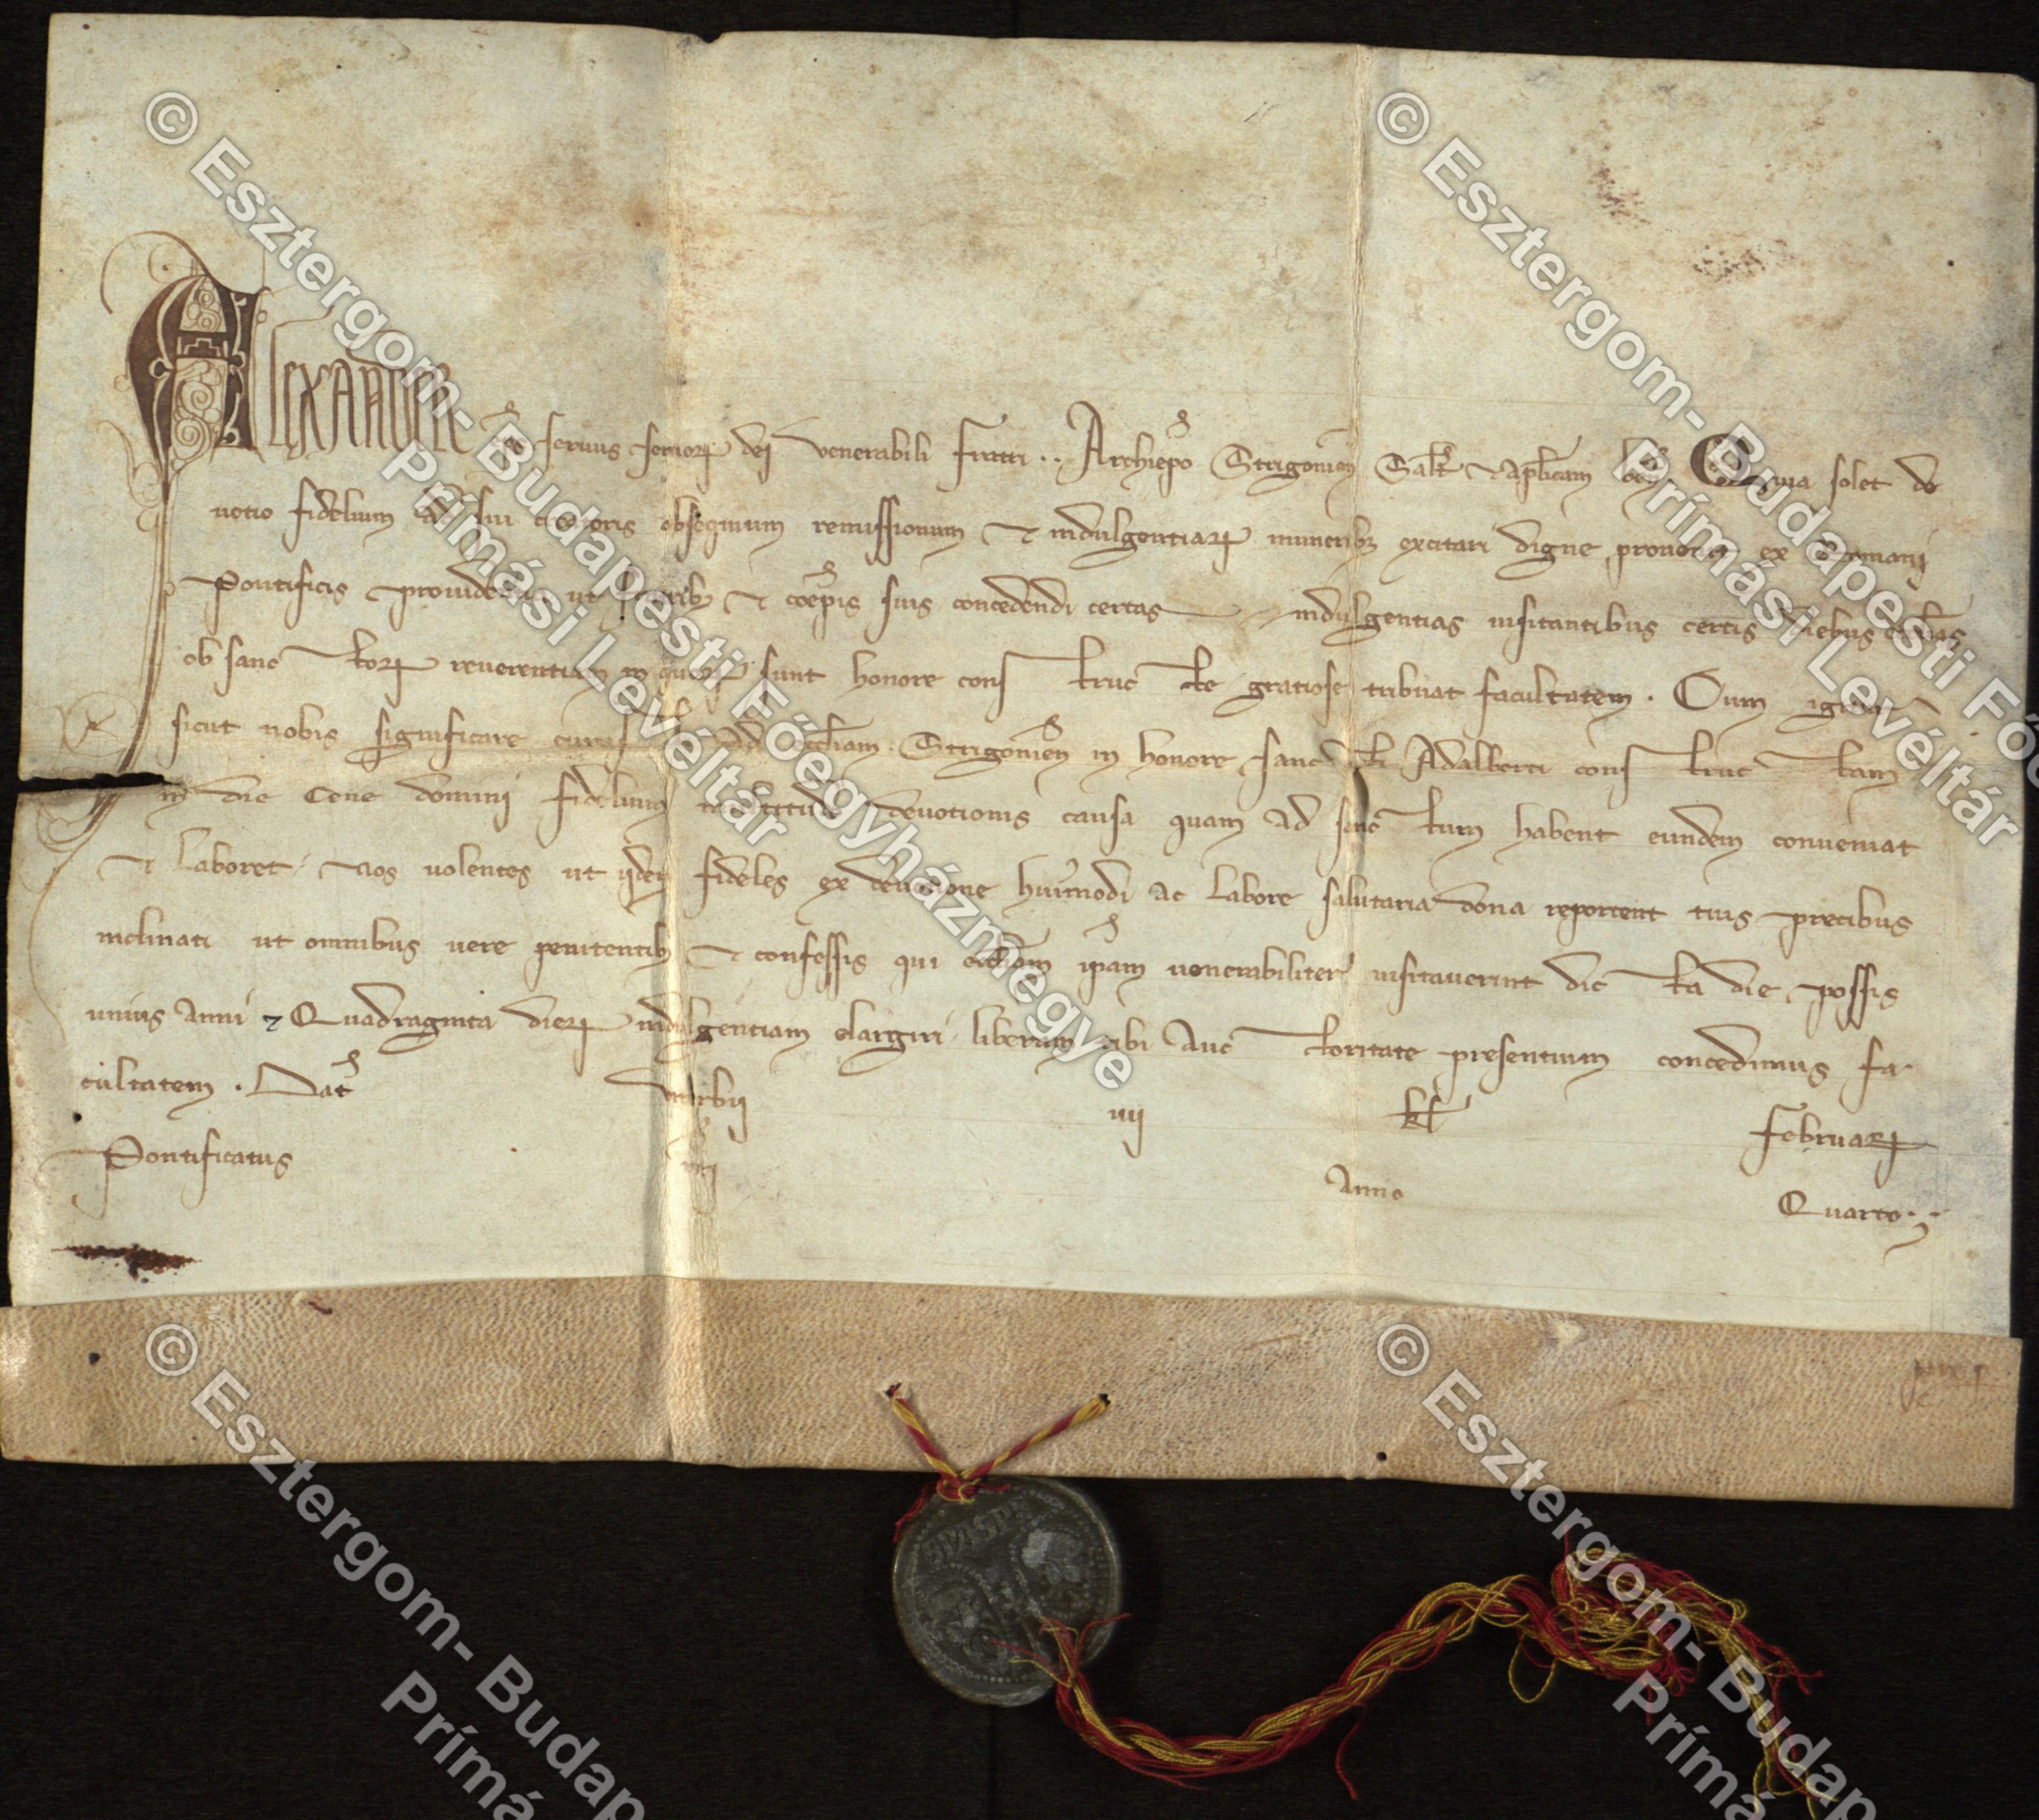 Alexander ep̅s seruus seruoꝝ dei Venerabili fratri .. Archiep̅o Strigonien̅ Salt̅ ⁊ aplicam ben̅. Quia solet de
uotio fidelium ad sui creatoris obsequium remissionum ⁊ indulgentiaꝝ muneribꝫ excitari digne prouenit ex Romani
Pontificis prouidentia ut fratribꝫ ⁊ coep̅is suis concedendi certas indulgentias uisitantibus certis diebus eccl̅ias
ob sanctoꝝ reuerentiam in quoꝝ sunt honore constructe gratiose tribuat facultatem . Cum igitur
sicut nobis significare curasti ad eccl̅iam Strigonien̅ in honore sancti Adalberti constructam
in die Cene domini fidelium multitudo deuotionis causa quam ad sanctum habent eundem conueniat
⁊ laboret. Nos uolentes ut ijdem fideles ex deuotione huiꝰmodi ac labore salutaria dona reportent tuis precibus
inclinati ut omnibus uere penitentibꝫ ⁊ confessis qui eccl̅iam ip̅am uenerabiliter uisitauerint dicta die possis
unius anni ⁊ Quadraginta dieꝝ indulgentiam elargiri liberam tibi auctoritate presentium concedimus fa-
cultatem . Dat̅ Viterbij iiij kl̅ Februarꝝ
Pontificatus nr̅i Anno Quarto ..
SPASPE
© Esztergom- Budapesti Főegyházmegye
Prímási Levéltár
© Esztergom- Budapesti Fő
Prímási Levéltár
© Esztergom- Budap
Prímá
© Esztergom- Budap
Prímá